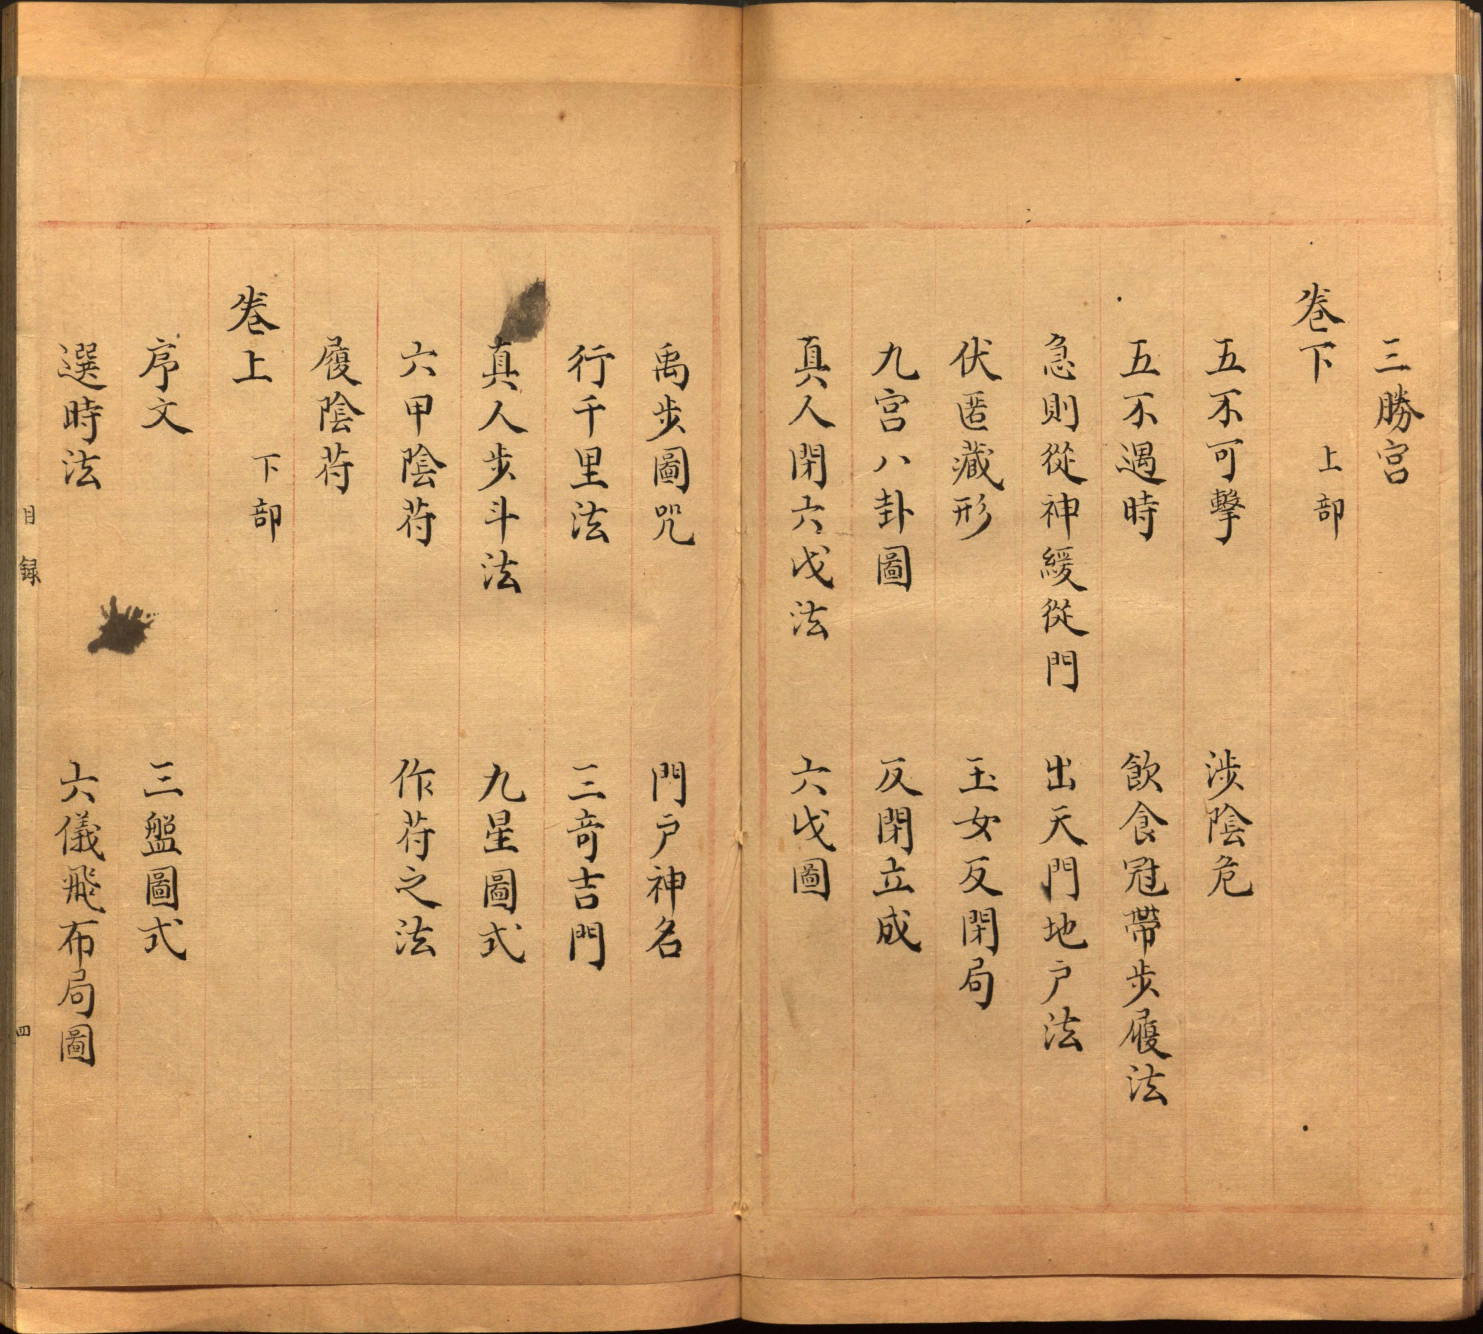 三勝宮
卷下 上部
五不可擊 涉陰危
五不遇時 飲食冠帶步履法
急則從神緩從門 出天門地户法
伏匿藏形 玉女反閉局
九宮八卦圖 反閉立成
真人閉六戊法 六戊圖
禹步圖咒 門户神名
行千里法 三奇吉門
真人步斗法 九星圖式
六甲陰苻 作苻之法
履陰苻
卷上 下部
序文 三盤圖式
選時法 六儀飛布局圖
目録 四